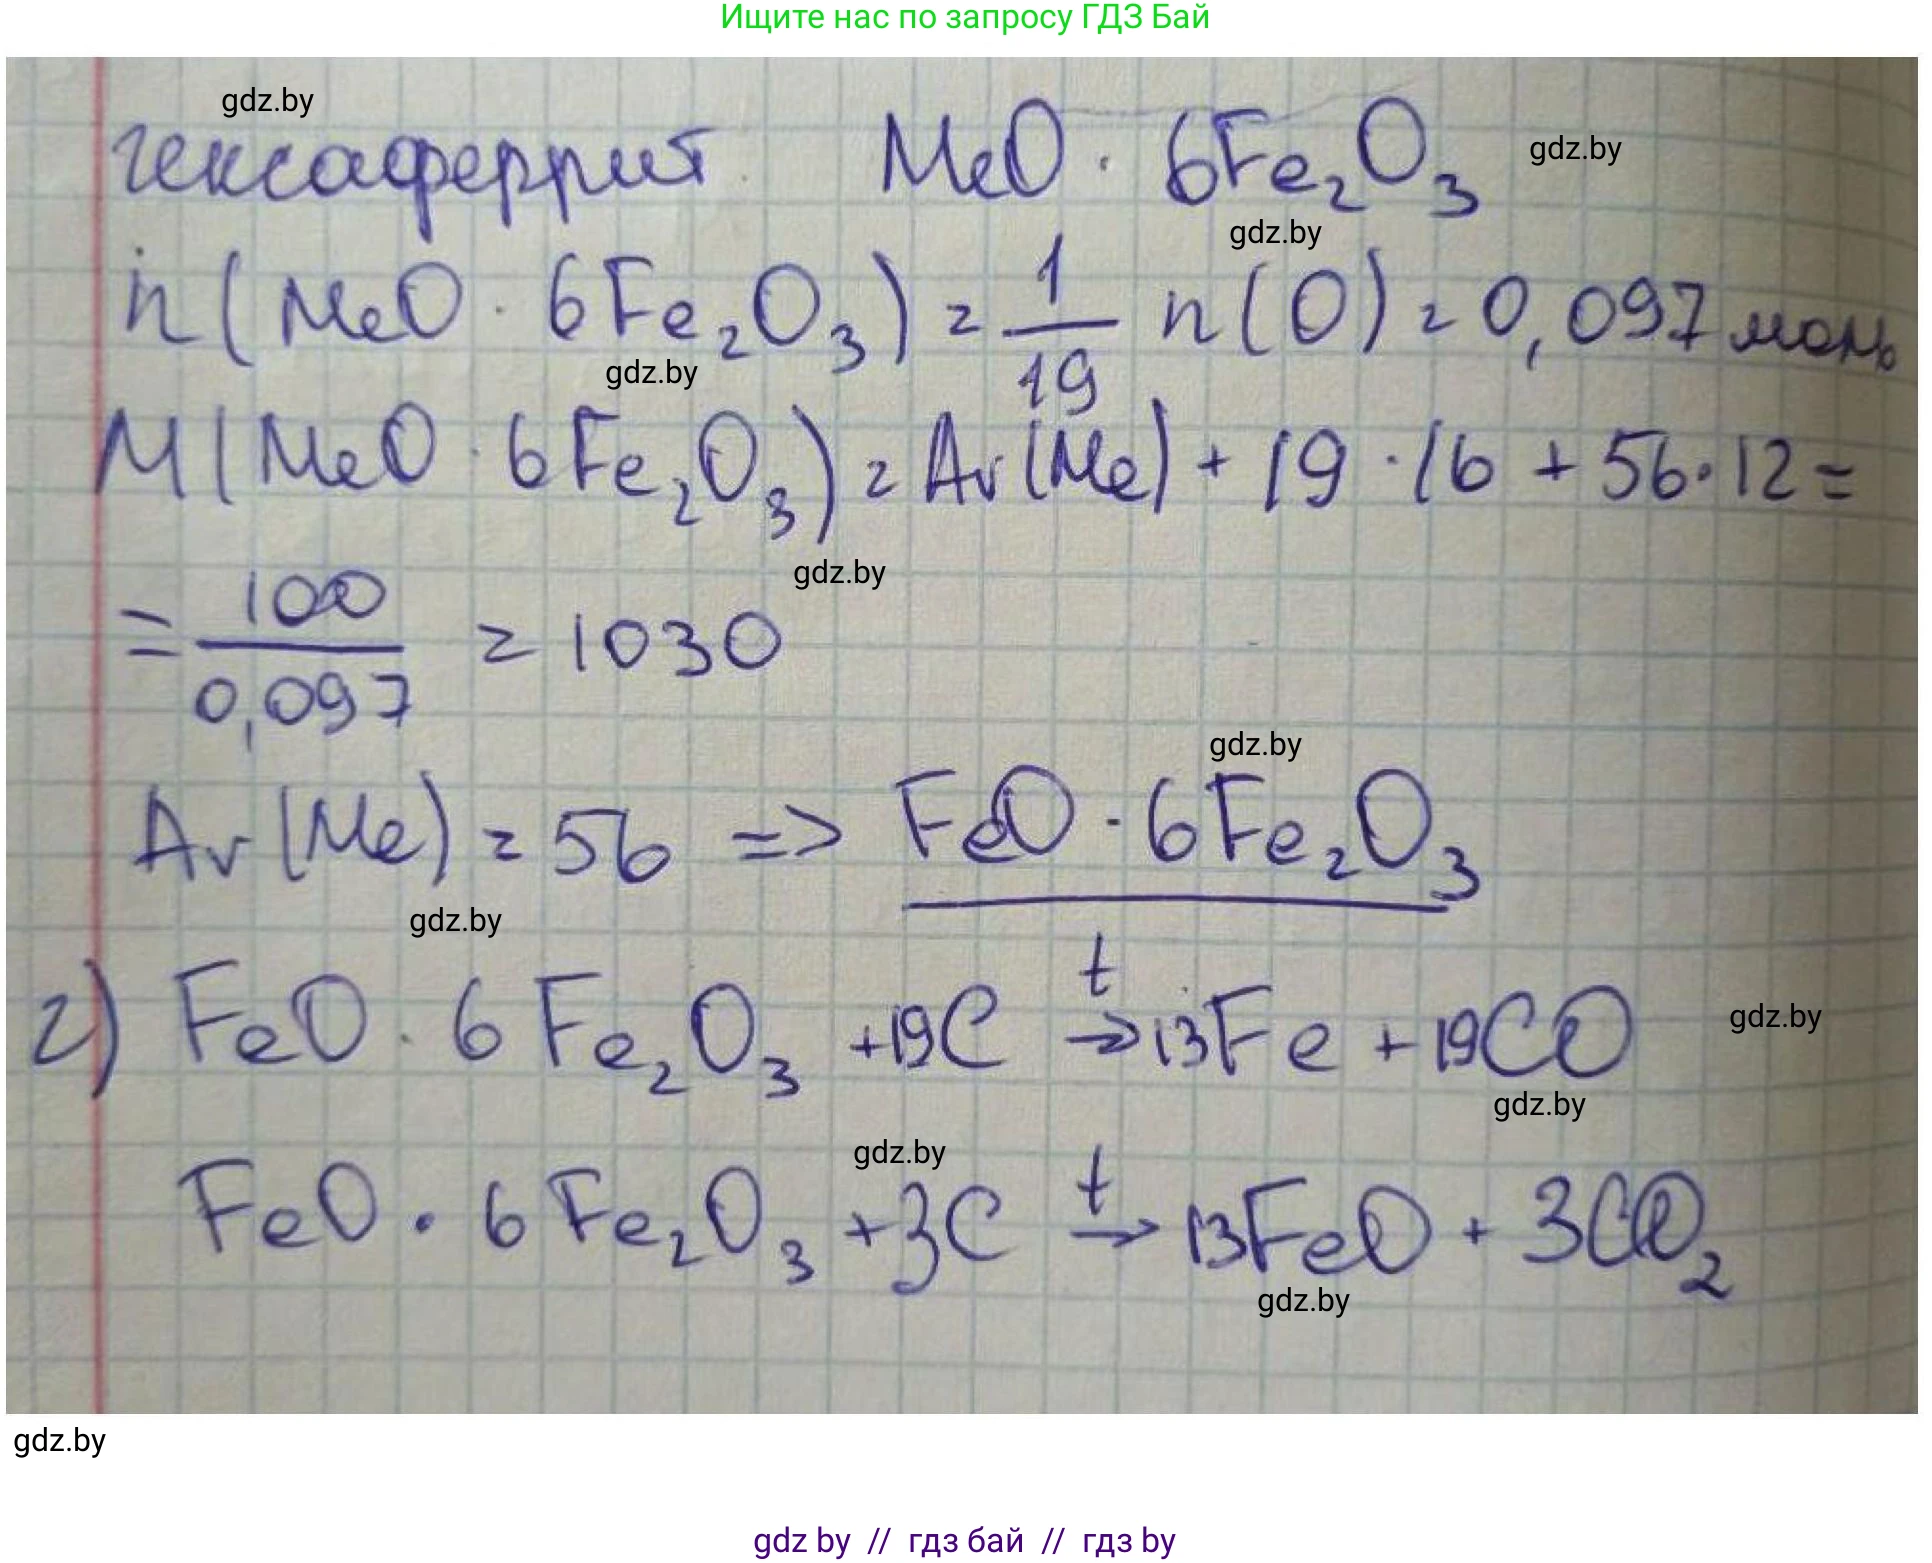 Ищите нас по запросу ГДЗ Бай
gdz.by
гексаферрит MeO · 6Fe₂O₃ gdz.by
gdz.by
n(MeO · 6Fe₂O₃) = 1/19 n(O) = 0,097 моль
gdz.by
M(MeO · 6Fe₂O₃) = Ar(Me) + 19 · 16 + 56 · 12 =
gdz.by
= 100/0,097 = 1030
gdz.by
Ar(Me) = 56 => FeO · 6Fe₂O₃
gdz.by
г) FeO · 6Fe₂O₃ +19C t→ 13Fe + 19CO gdz.by
gdz.by
gdz.by
FeO · 6Fe₂O₃ +3C t→ 13FeO + 3CO₂
gdz.by
gdz.by
gdz by // гдз бай // гдз by